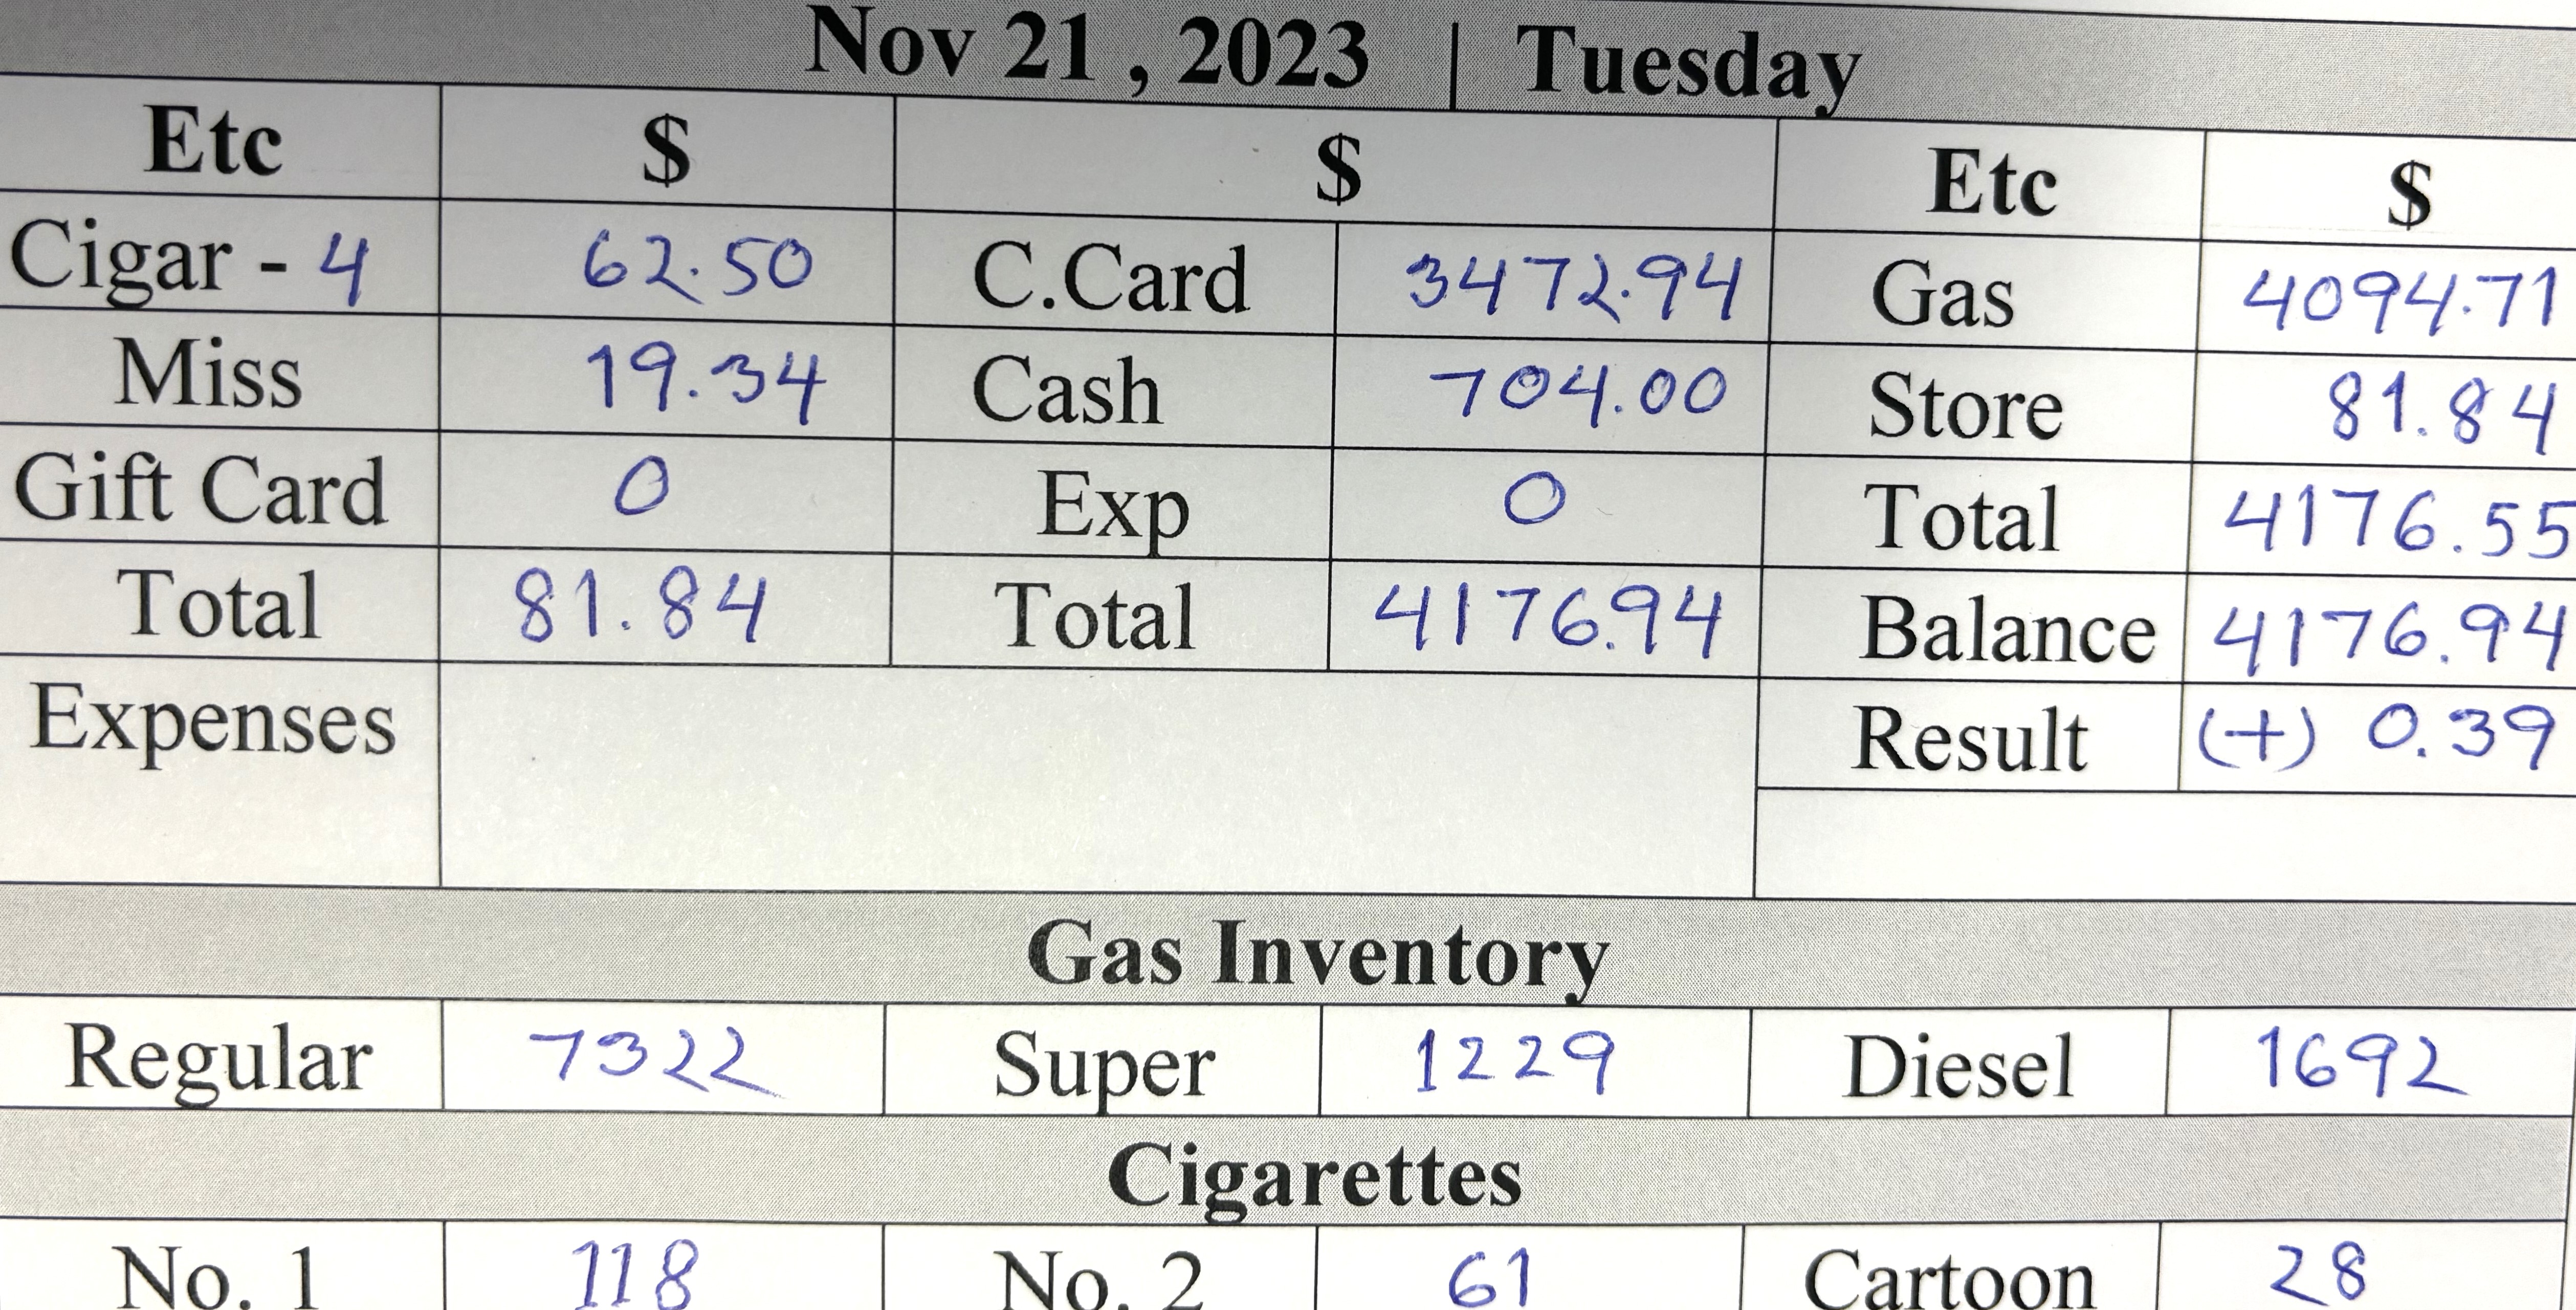 Nov 21 , 2023 | Tuesday
Etc $ $ Etc $
Cigar - 4 62.50 C.Card 3472.94 Gas 4094.71
Miss 19.34 Cash 704.00 Store 81.84
Gift Card 0 Exp 0 Total 4176.55
Total 81.84 Total 4176.94 Balance 4176.94
Expenses Result (+) 0.39
Gas Inventory
Regular 7322 Super 1229 Diesel 1692
Cigarettes
No. 1 118 No. 2 61 Cartoon 28